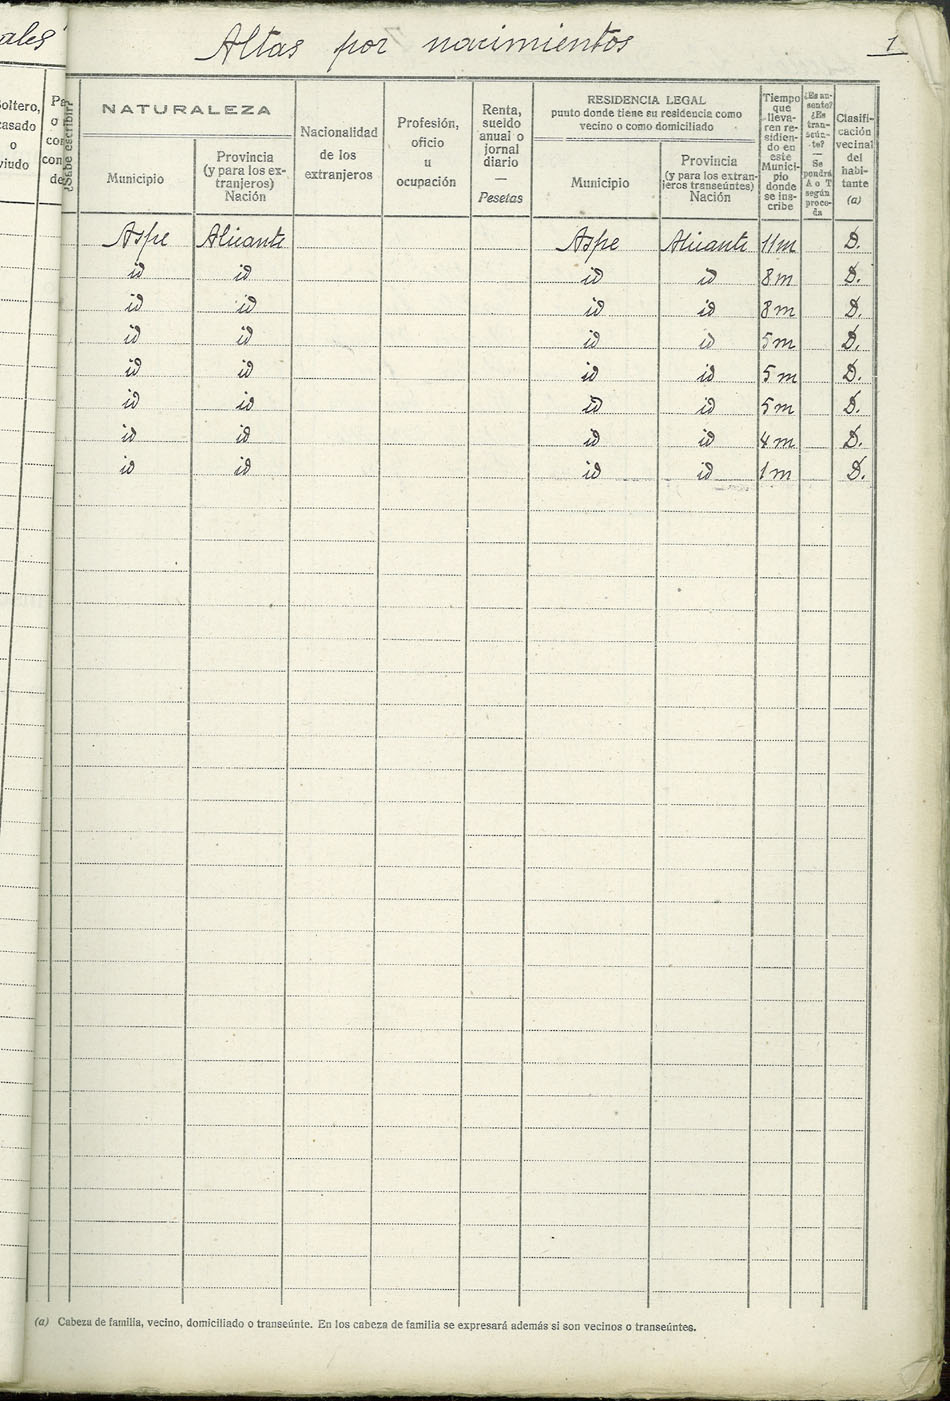 ales
Altas por nacimientos
1
Soltero,
casado
o
viudo
Pa
o
co
con
de
¿Sabe escribir?
NATURALEZA
Municipio
Provincia
(y para los ex-
tranjeros)
Nación
Nacionalidad
de los
extranjeros
Profesión,
oficio
u
ocupación
Renta,
sueldo
anual o
jornal
diario
—
Pesetas
RESIDENCIA LEGAL
punto donde tiene su residencia como
vecino o como domiciliado
Municipio
Provincia
(y para los extran-
jeros transeúntes)
Nación
Tiempo
que
lleva-
ren re-
sidien-
do en
este
Munici-
pio
donde
se ins-
cribe
¿Es au-
sente?
¿Es
tran-
seún-
te?
—
Se
pondrá
A o T
según
proce-
da
Clasifi-
cación
vecinal
del
habi-
tante
(a)
Aspe Alicante Aspe Alicante 11 m D.
id id id id 8 m D.
id id id id 8 m D.
id id id id 5 m D.
id id id id 5 m D.
id id id id 5 m D.
id id id id 4 m D.
id id id id 1 m D.
(a) Cabeza de familia, vecino, domiciliado o transeúnte. En los cabeza de familia se expresará además si son vecinos o transeúntes.